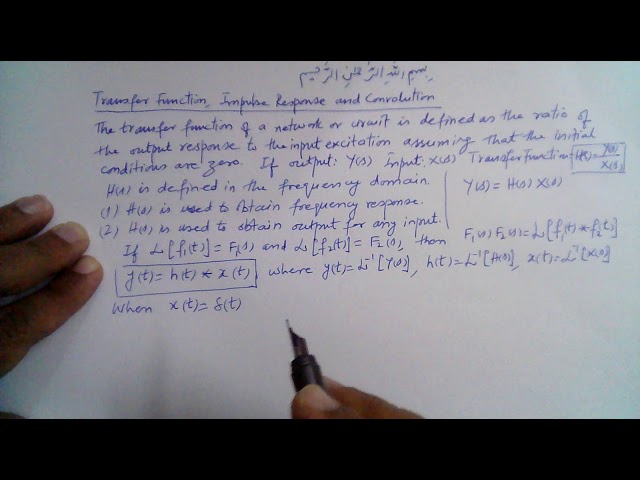 بسم الله الرحمن الرحيم
Transfer Function, Impulse Response and Convolution
The transfer function of a network or circuit is defined as the ratio of
the output response to the input excitation assuming that the initial
conditions are zero. If output: Y(s) Input: X(s) Transfer Function = H(s) = Y(s)/X(s)
H(s) is defined in the frequency domain. Y(s) = H(s) X(s)
(1) H(s) is used to obtain frequency response.
(2) H(s) is used to obtain output for any input.
If ℒ[f₁(t)] = F₁(s) and ℒ[f₂(t)] = F₂(s), then F₁(s) F₂(s) = ℒ[f₁(t) * f₂(t)]
y(t) = h(t) * x(t) where y(t) = ℒ⁻¹[Y(s)], h(t) = ℒ⁻¹[H(s)], x(t) = ℒ⁻¹[X(s)]
When x(t) = δ(t)